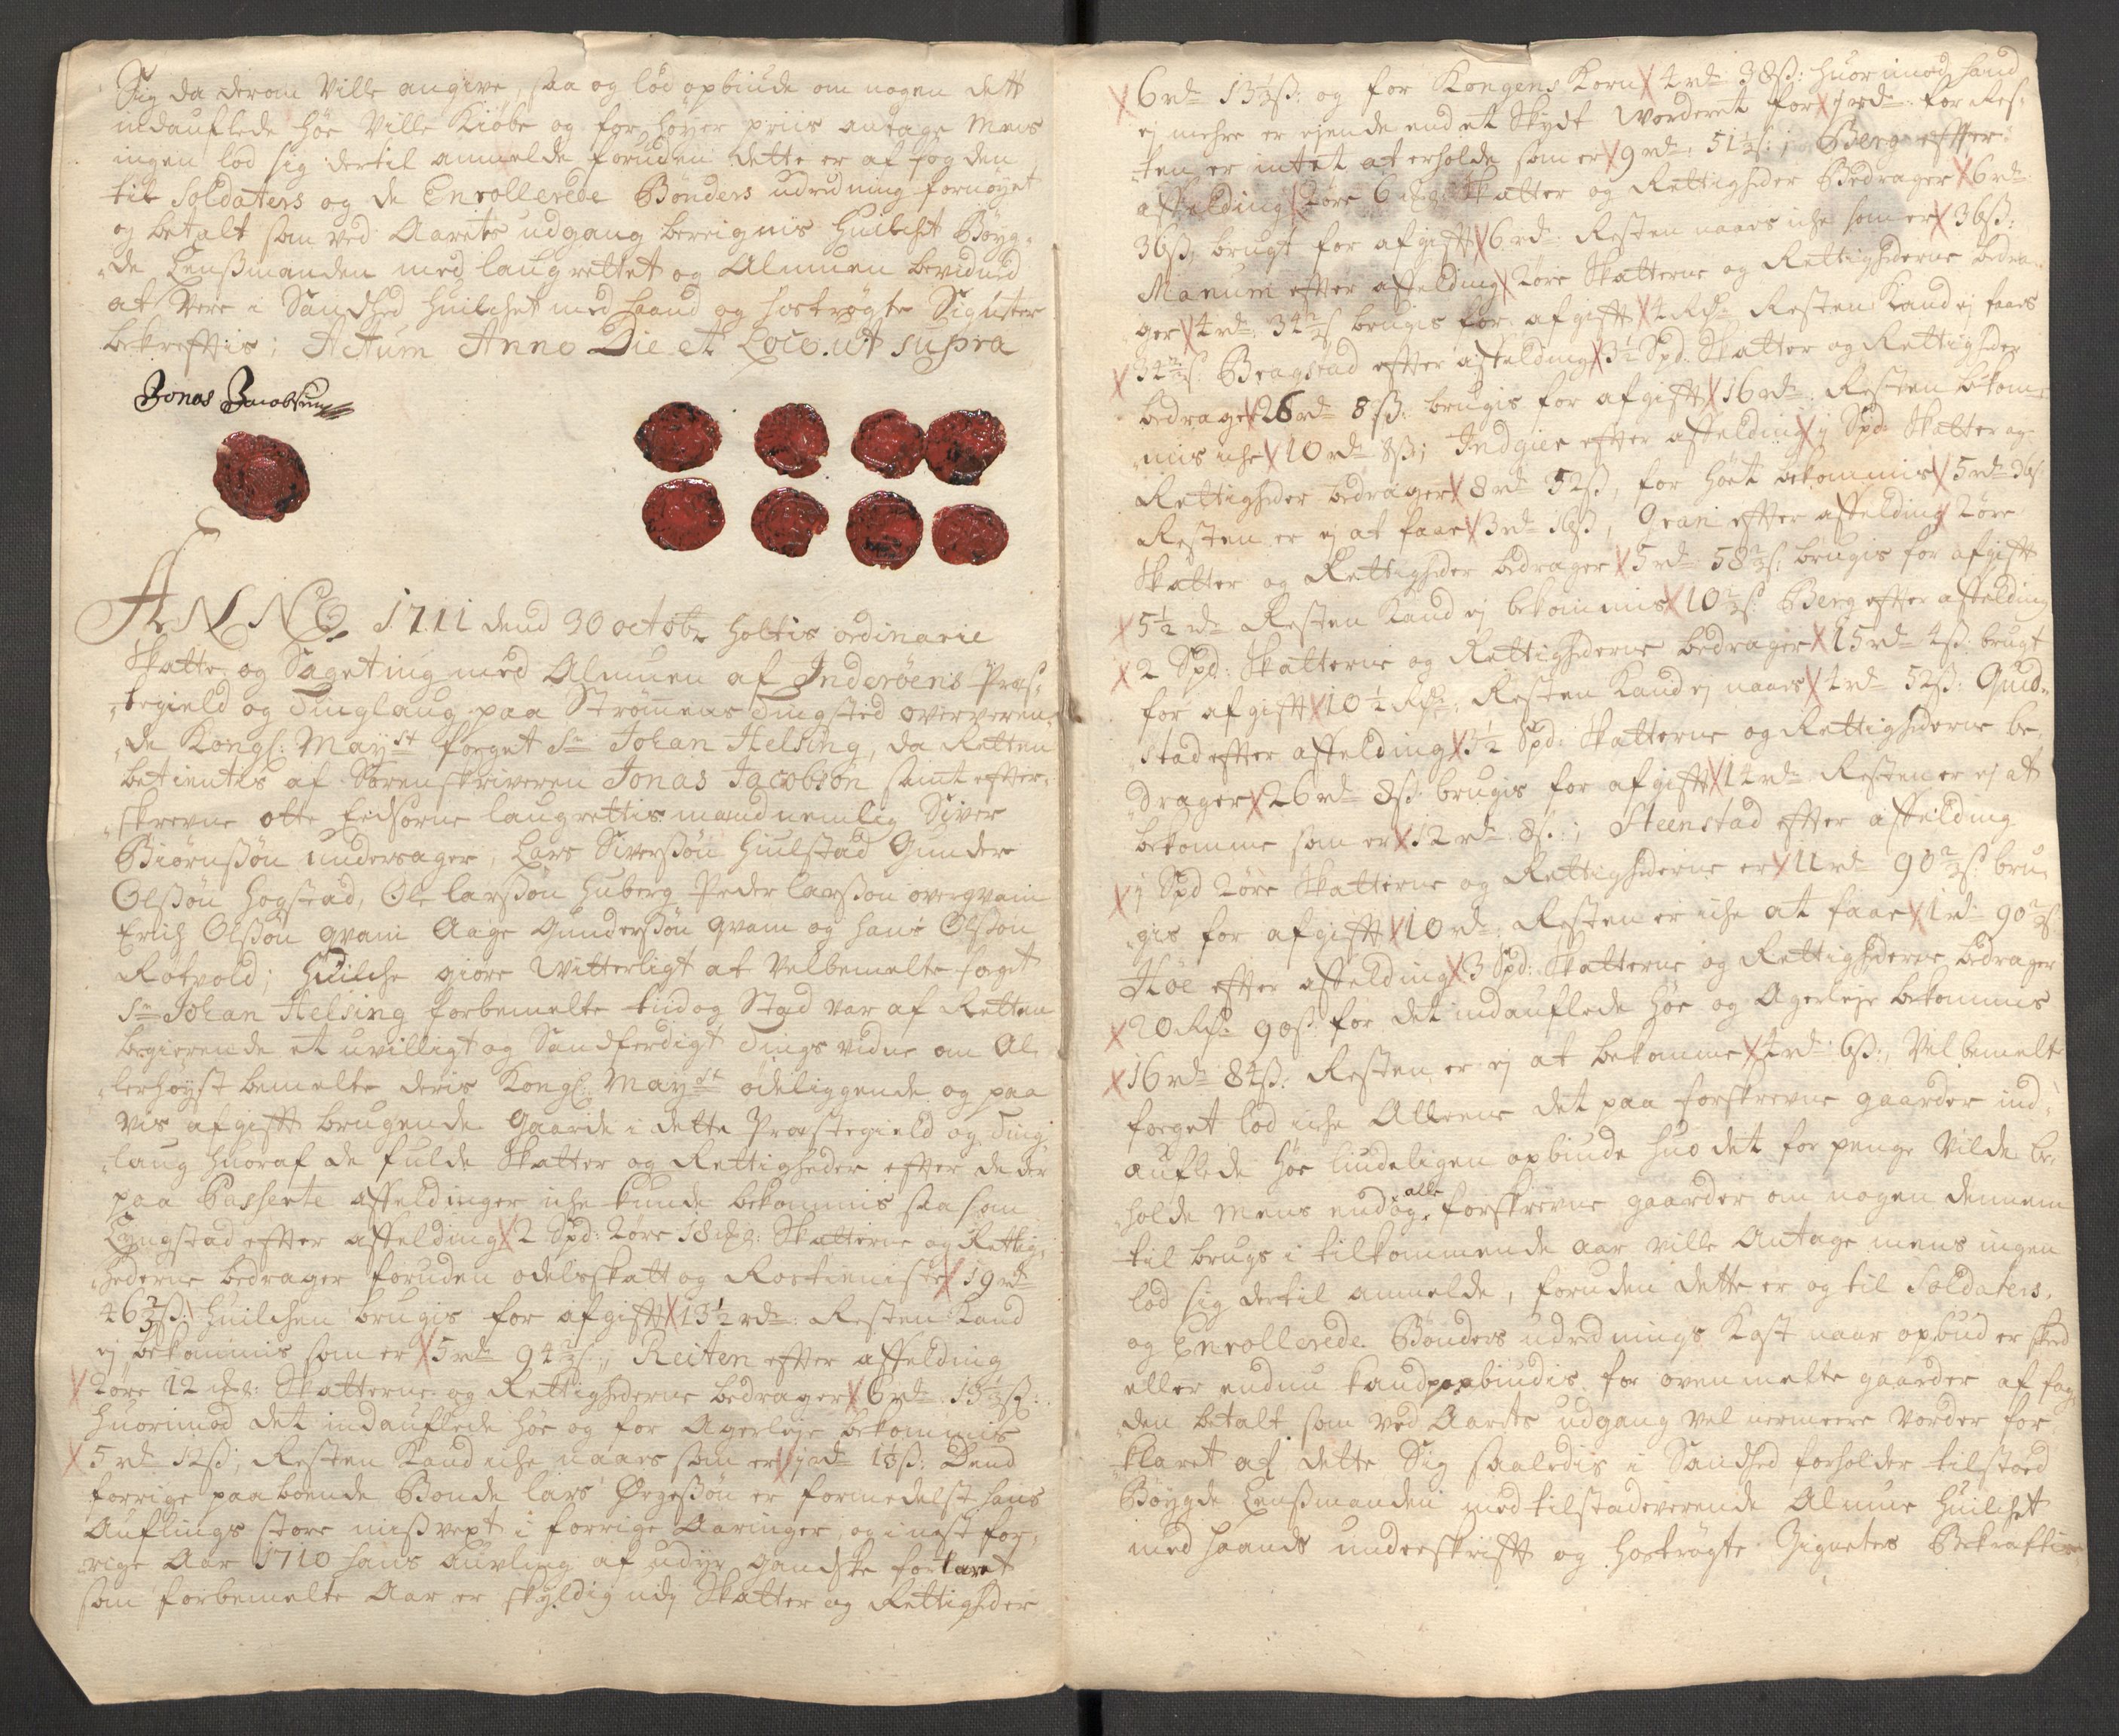 Sig da derom Ville angive, saa og lod opbiude om nogen dett
indauflede høe Ville Kiøbe og for høyer priis antage Mens
ingen lod sig dertil anmelde foruden dette er af fogden
til Soldaters og de Enrollerede Bønders udredning fornøyet
og betalt som ved Aarets udgang bereignis Huilchet Bøyg-
de Lensmanden med laugrettet og Almuen bevidned
at Vere i Sandhed Huilchet med haand og hostrøgte Signeter
bekreftis; Actum Anno Die et Loco ut supra
Jonas Jacobsøn
ANNO 1711 dend 30 octobr holtis ordinarie
Skatte og Sageting med Almuen af Inderøens Præs-
tegield og Tinglaug paa Strømmens Tingsted oververen-
de Kongl: Mayst foged Sr Johan Helsing, da Retten
betientes af Sorenskriveren Jonas Jacobsøn samt efter-
skrevne otte Eedsorne laugrettis mænd nemlig Siver
Biørnssøn undersager, Lars Siverssøn Huilstad Gunder
Olssøn hogstad, Ole larssøn huberg Peder larsson overqvam
Erich Olssøn qvam Aage Gunderssøn qvam og hans Olsson
Rotvold; Huilche giøre Witterligt at Velbemelte foget
Sr Johan Helsing forbemelte tiid og Stad var af Retten
begierende et uvilligt og Sandferdigt Tings vidne om Al-
lerhøyst bemelte deris Kongl: Mayst ødeliggende og paa
vis afgifft brugende gaarde i dette Præstegield og Ting-
laug huoraf de fulde Skatter og Rettigheder efter de der
paa Passerte affeldinger iche kunde bekommis saa som
Lyngstad efter affelding 2 Spd: 2øre 18 mkl: Skatterne og Rettig-
hederne bedrager foruden odelsskatt og Rostieniste 19 rd
46 2/3 ß: Huilchen brugis for afgifft 13 1/2 rd: Resten Kand
ej bekommis som er 5 rd 94 2/3 ß; Reiten efter affelding
2øre 12 mkl: Skatterne og Rettighederne bedrager 6 rd 13 1/3 ß:
huorimod det indauflede høe og for Agerleje bekommis
5 rd 12 ß; Resten Kand iche naaes som er 1 rd 1 1/3 ß: Dend
forrige paaboende Bonde lars Ørgessøn er formedelst hans
Auflings store missvext i forrige Aaringer og i nest for-
rige Aar 1710 hans auvling af udyr gandske fortaret
som forbemelte Aar er skyldig udj Skatter og Rettigheder
6 rd 13 1/3 ß: og for Kongens Korn 4 rd 38 ß: huorimod hand
ej mehre er ejende end et Skydt Worderet for 1 rd: for Res-
ten er intet at erholde som er 9 rd: 51 1/3 ß; Berg effter
affelding 2øre 6 mkl: Skatter og Rettigheder Bedrager 6 rd
36 ß, brugt for afgifft 6 rd: Resten naaes iche som er 36 ß:
Manum efter affelding 2øre Skatterne og Rettighederne bedra-
ger 4 rd: 34 2/3 ß brugis for afgifft 4 Rdr Resten Kand ej faaes
34 2/3 ß: Bragstad effter affelding 3 1/2 Spd: Skatter og Rettigheder
bedrager 26 rd 8 ß: brugis for afgifft 16 rd: Resten bekom-
mis iche 10 rd 8 ß; Indgier efter affelding 1 Spd Skatter og
Rettigheder bedrager 8 rd 52 ß, for høet bekommis 5 rd 36 ß
Resten er ej at faae 3 rd 16 ß, Grani efter affelding 2øre
Skatter og Rettigheder bedrager 5 rd 58 2/3 ß: brugis for afgifft
5 1/2 rd Resten Kand ej bekommis 10 2/3 ß: Berg efter affelding
2 Spd: Skatterne og Rettighederne bedrager 15 rd 4 ß: brugt
for afgifft 10 1/2 Rdr: Resten Kand ej naaes 4 rd 52 ß: Gud-
stad efter affelding 3 1/2 Spd: Skatterne og Rettighederne be-
drager 26 rd 8 ß: brugis for afgifft 14 rd: Resten er ej at
bekomme som er 12 rd 8 ß; Steenstad effter affelding
1 Spd 2øre Skatterne og Rettighederne er 11 rd 90 2/3 ß: bru-
gis for afgifft 10 rd: Resten er iche at faae 1 rd 90 2/3 ß
Høe effter affelding 3 Spd: Skatterne og Rettighederne bedrager
20 Rdr 90 ß for det indauflede høe og Agerleje bekommis
16 rd 84 ß: Resten er ej at bekomme 4 rd 6 ß:, Velbemelte
foget lod iche Alleene det paa forskrevne gaarder ind-
auflede høe liudeligen opbiude huo det for penge Vilde be-
holde Mens endog alle forskrevne gaarder om nogen dennem
til brugs i tilkommende aar ville Antage mens ingen
lod sig dertil anmelde, foruden dette er og til Soldaters
og Enrollerede Bønders udrednings Kost naar opbud er skeed
eller endnu kand paabiudis for ovenmelte gaarder af fog-
den betalt som ved Aarets udgang vel nermere vorder for
klaret at dette Sig saaledis i Sandhed forholder tilstoed
Bøygde Lensmanden med tilstedeverende Almue Huilchet
med haands underskrifft og hostrøgte Zigneters Bekræfftis